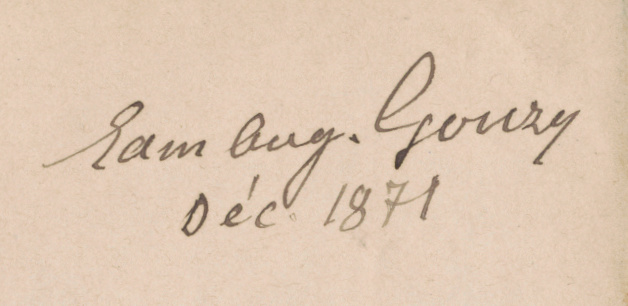 Edm Aug. Gouzy
Déc. 1871